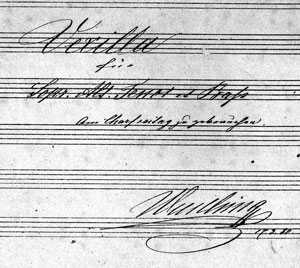 Vexilla
für
Sopr. Alt. Tenor et Baß
Am Charfreitag zu gebrauchen.